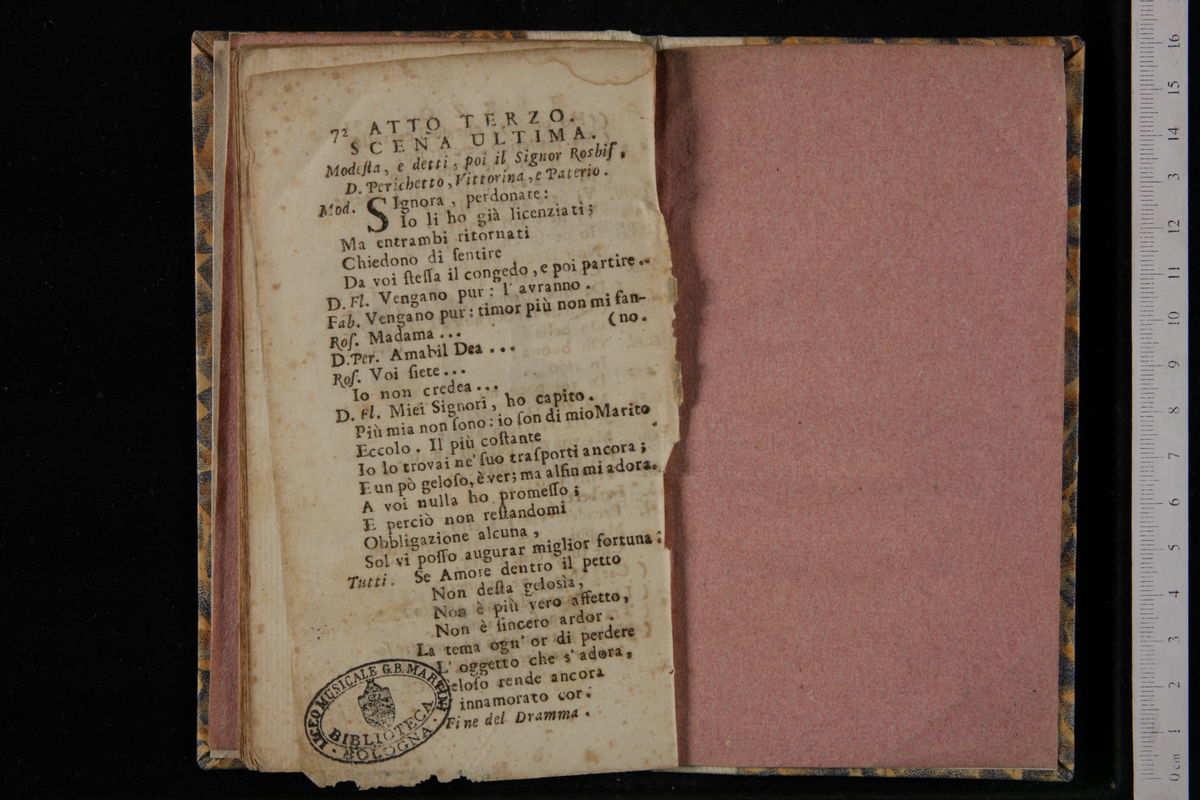 72 ATTO TERZO.
SCENA ULTIMA.
Modeſta, e detti, poi il Signor Rosbif,
D. Perichetto, Vittorina, e Paterio.
Mod. SIgnora, perdonate:
Io li ho già licenziati;
Ma entrambi ritornati
Chiedono di ſentire
Da voi ſteſſa il congedo, e poi partire.
D. Fl. Vengano pur: l'avranno.
Fab. Vengano pur: timor più non mi fan-
(no.
Roſ. Madama...
D. Per. Amabil Dea...
Roſ. Voi ſiete...
Io non credea...
D. Fl. Miei Signori, ho capito.
Più mia non ſono: io ſon di mio Marito
Eccolo. Il più coſtante
Io lo trovai ne' ſuo traſporti ancora;
E un pò geloſo, è ver; ma alfin mi adora.
A voi nulla ho promeſſo;
E perciò non reſtandomi
Obbligazione alcuna,
Sol vi poſſo augurar miglior fortuna:
Tutti. Se Amore dentro il petto
Non deſta gelosìa,
Non è più vero affetto,
Non è ſincero ardor.
La tema ogn' or di perdere
L' oggetto che s' adora,
eloſo rende ancora
innamorato cor.
Fine del Dramma.
LICEO MUSICALE G.B. MARTINI
BIBLIOTECA
BOLOGNA
0 cm 1 2 3 4 5 6 7 8 9 10 11 12 13 14 15 16